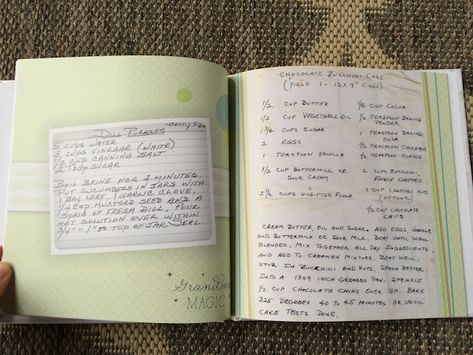 Dill Pickles
5 cups water
cups vinegar (white)
1/2 cup canning salt
tsp sugar
Boil brine for 2 minutes.
Put cucumbers in jars with
1 bay leaf, 1 garlic clove,
mustard seed and a
sprig of fresh dill. Pour
hot solution over within
3/4" - 1" to top of jar. Seal.
Grandma
MAGIC
Chocolate Zucchini Cake
(Yield 1 - 13x9" cake)
1/2 cup butter
1/2 cup vegetable oil
1 3/4 cups sugar
2 eggs
1 teaspoon vanilla
1/2 cup buttermilk or
sour cream
2 1/2 cups unsifted flour
1/4 cup cocoa
1/2 teaspoon baking
powder
1 teaspoon baking
soda
1/2 teaspoon cinnamon
1/2 teaspoon cloves
2 cups zucchini,
finely chopped
1 cup chopped nuts
(optional)
1/2 cup chocolate
chips
Cream butter, oil and sugar. Add eggs, vanilla
and buttermilk or sour milk. Beat until well
blended. Mix together all dry ingredients
and add to creamed mixture. Beat well.
Stir in zucchini and nuts. Spoon batter
into a 13x9 inch greased pan. Sprinkle
1/2 cup chocolate chips over top. Bake
325 degrees 40 to 45 minutes or until
cake tests done.